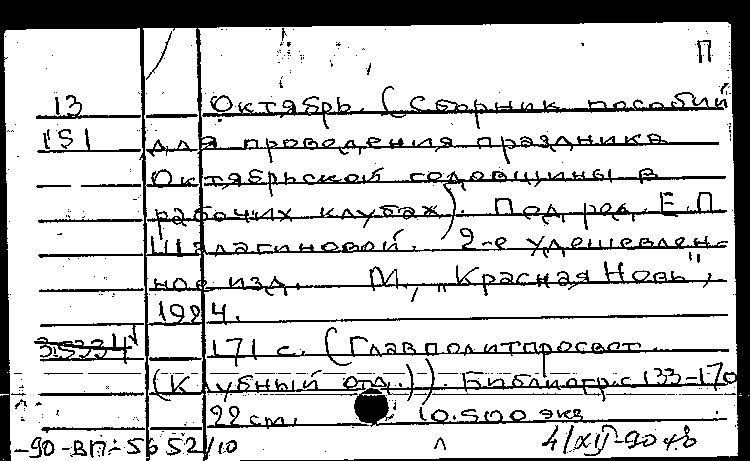 П
13 Октябрь. (Сборник пособий
151 для проведения праздника
Октябрьской годовщины в
рабочих клубах). Под ред. Е.П.
Шалагиновой. 2-е удешевлен-
ное изд. М., "Красная Новь",
1924.
3.5334 171 с. (Главполитпросвет.
(Клубный отд.)). Библиогр. с 133-170
22 cm. 10.500 экз
-90-ВП-5652/10